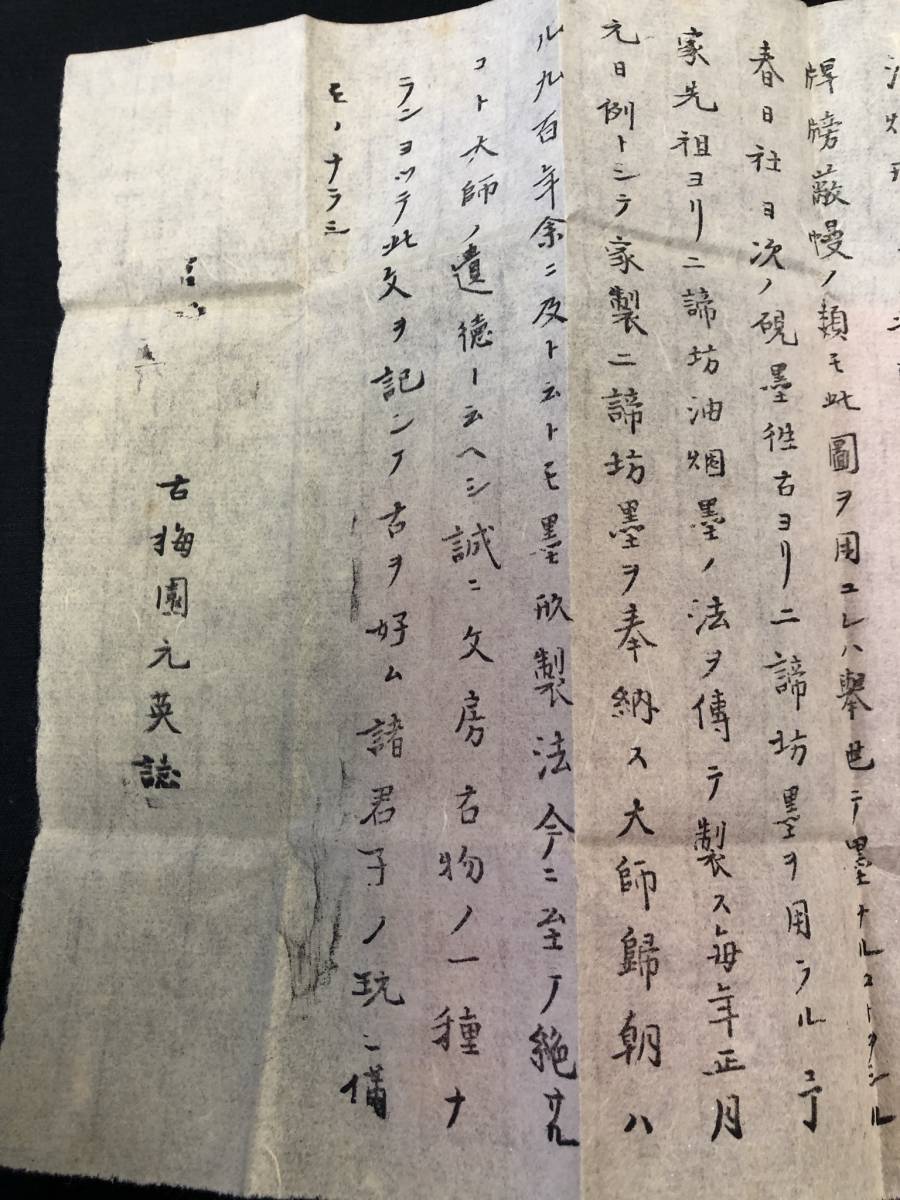 油烟
牌牓蔽幔ノ類モ此圖ヲ用ユレハ舉世テ墨ナルコトヲシル
春日社ヨ次ノ硯墨徃古ヨリ二諦坊墨ヲ用ラル
家先祖ヨリ二諦坊油烟墨ノ法ヲ傳テ製ス每年正月
元日例トシテ家製二諦坊墨ヲ奉納ス大師歸朝ハ
ル九百年余ニ及ト云トモ墨形製法今ニ至テ絶サル
コト大師ノ遺德ー云ヘシ誠ニ文房古物ノ一種ナ
ランヨツテ此文ヲ記シテ古ヲ好ム諸君子ノ玩ニ備
モノナラミ
古梅園元英誌